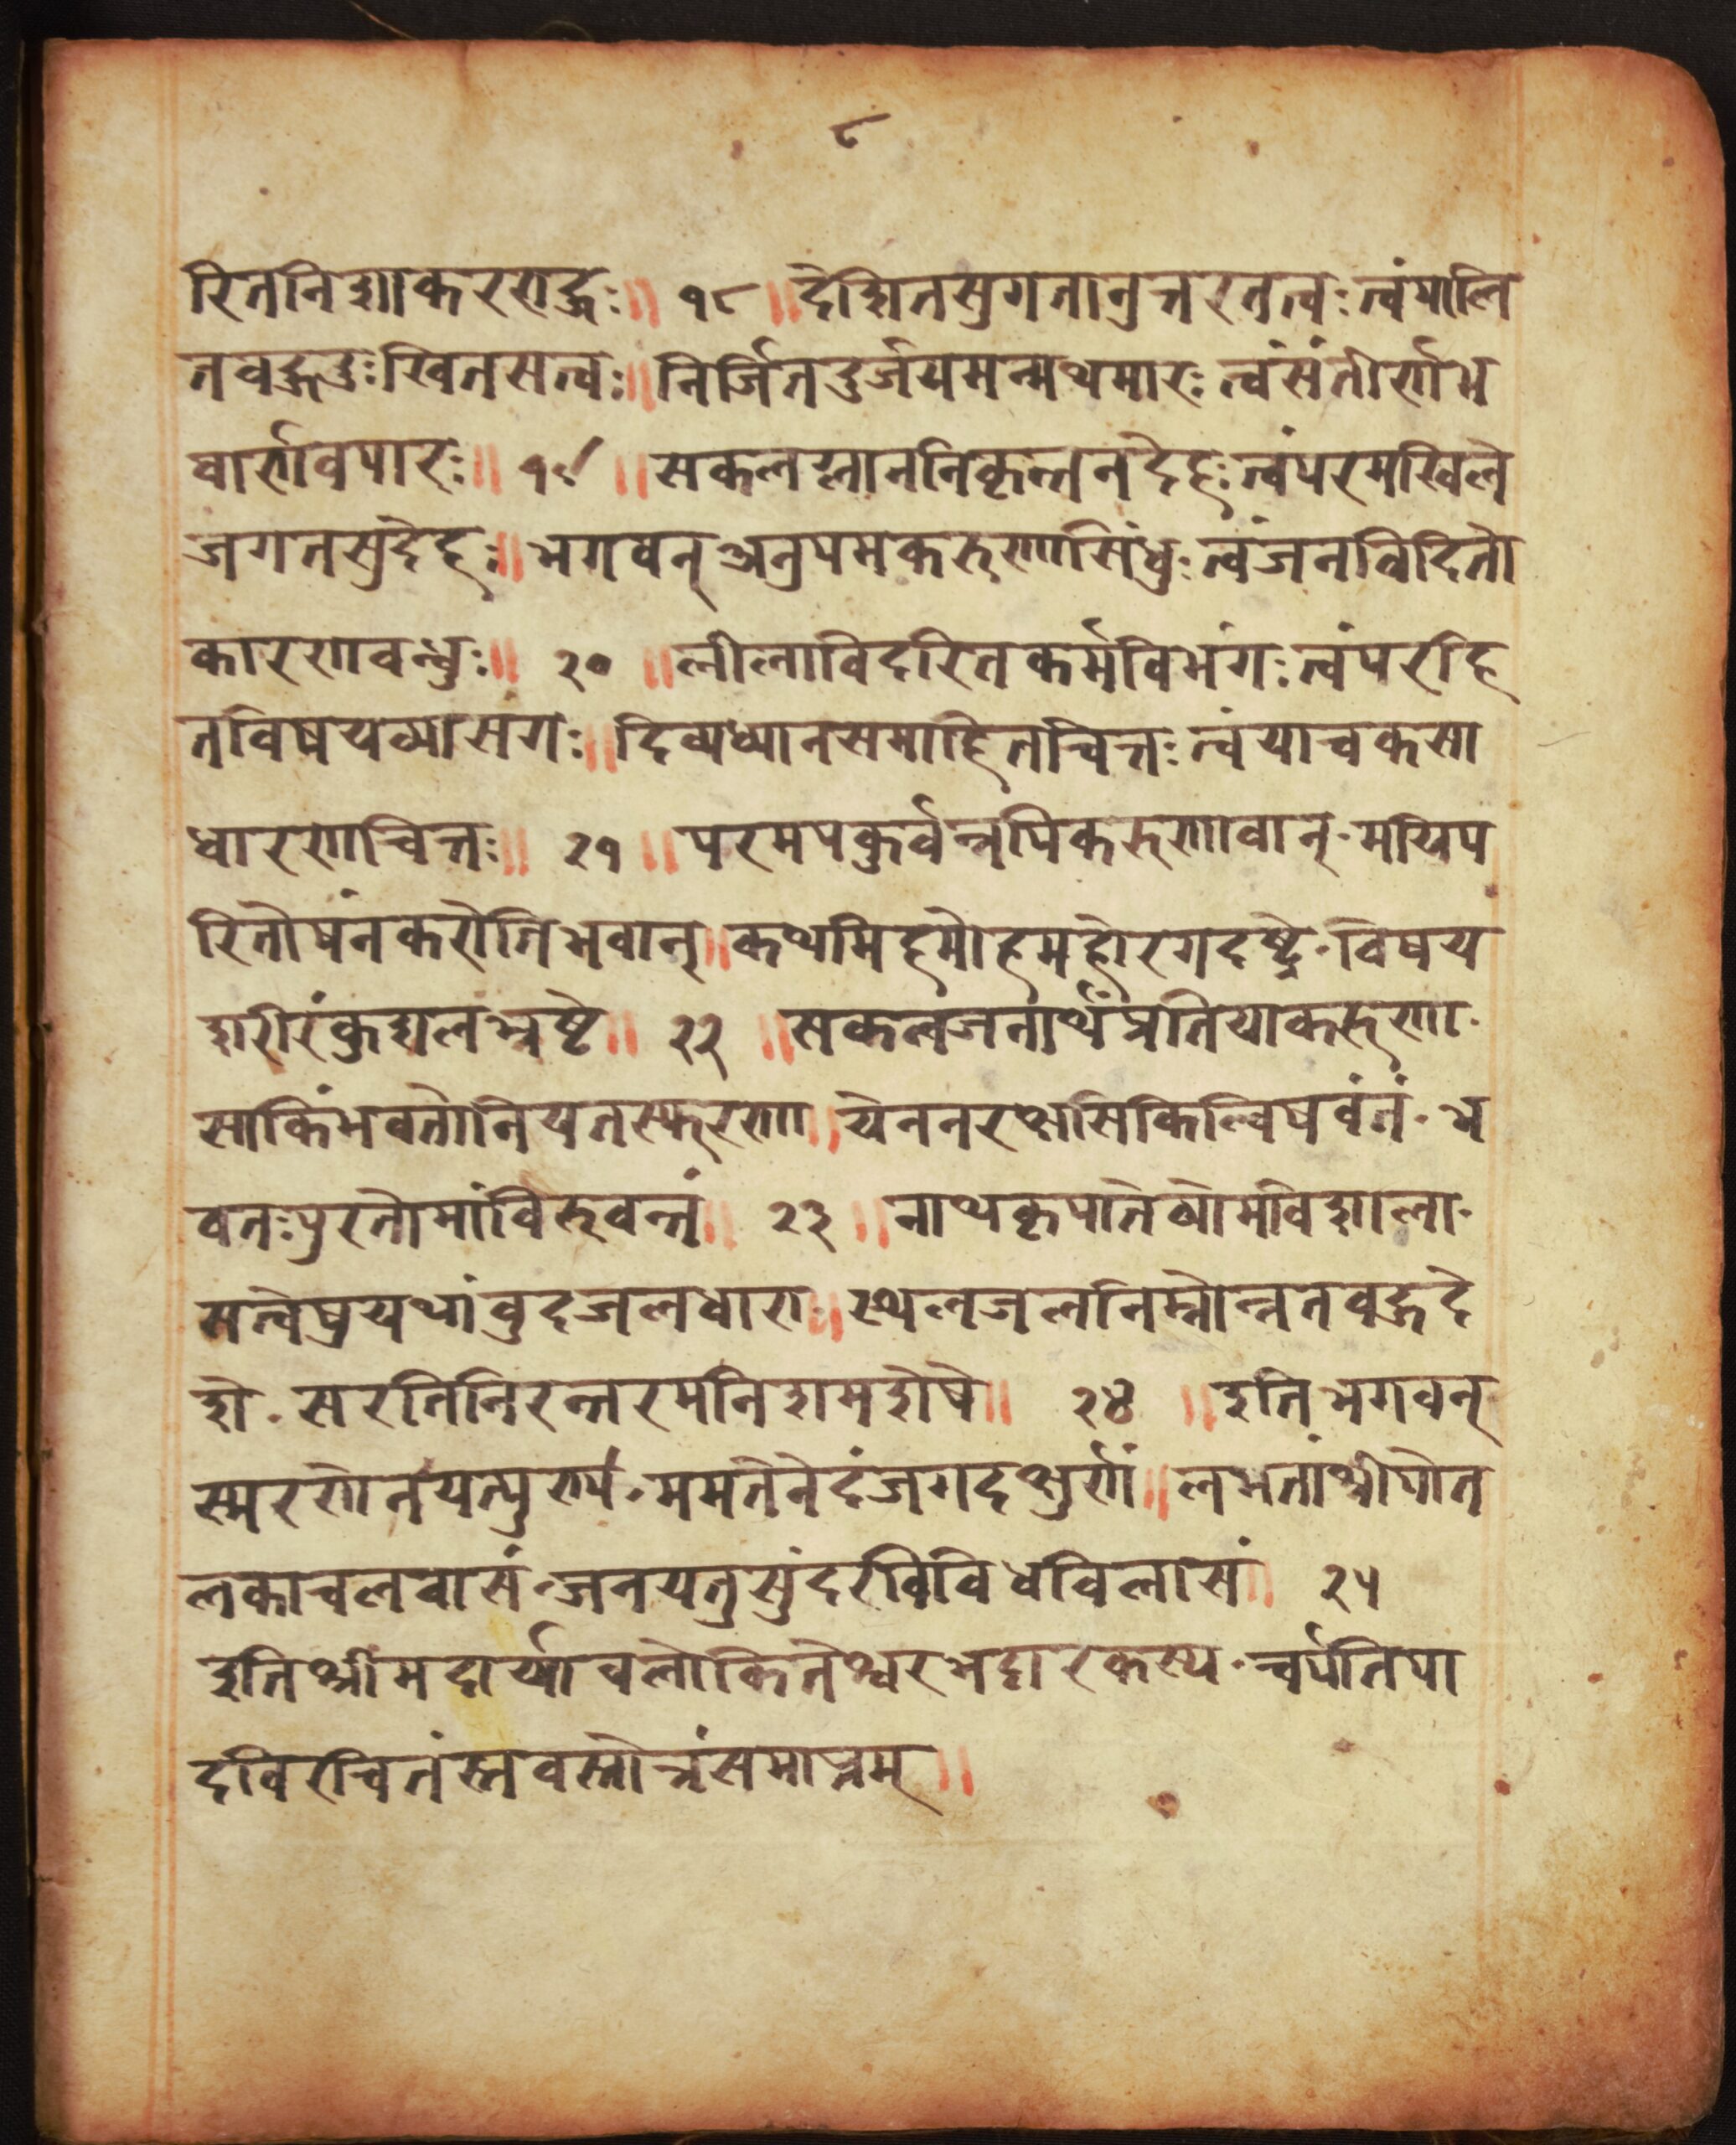 ८
रितनिशाकरराहुः॥ १८ ॥देशितसुगतानुत्तरतत्वः त्वंपालि
तवहुदुःखितसत्वः॥निर्जितदुर्जयमन्मथमारः त्वंसंतीर्णभ
वार्णवपारः॥ १९ ॥सकलज्ञाननिकृन्तनदेहः त्वंपरमखिले
जगतसुदेहः॥भगवन् अनुपमकरुणासिंधुः त्वंजनविदितो
कारणवन्धुः॥ २० ॥लीलाविदरितकर्मविभंगः त्वंपरहि
तविषयव्यासंगः॥दिव्यध्यानसमाहितचित्तः त्वंयाचकसा
धारणचित्तः॥ २१ ॥परमपकुर्वन्नपिकरुणावान्॰मयिप
रितोषंनकरोतिभवान्॥कथमिहमोहमहोरगदष्टे॰विषय
शरीरंकुशलभ्रष्टे॥ २२ ॥सकलजनार्थंप्रतियाकरुणा॰
साकिंभवतोनियतस्फुरणा॥येननरक्षसिकिल्विषवंतं॰भ
वतःपुरतोमांविरुवन्तं॥ २३ ॥नाथकृपातेव्योमविशाला॰
सत्वेषुयथांवुदजलधारा॥स्थलजलनिम्नोन्नतवहुदे
शे॰सरतिनिरन्तरमनिशमशेषे॥ २४ ॥इतिभगवन्
स्मरणेनयत्पुण्यं॰ममतेनेदंजगदक्षुर्णां॥लभतांश्रीपोत
लकाचलवासं॰जनयतुसुंदरविविधविलासं॥ २५
इतिश्रीमदार्यावलोकितेश्वरभट्टारकस्य॰चर्पतिपा
दविरचितंस्तवस्तोत्रंसमाप्तम्॥